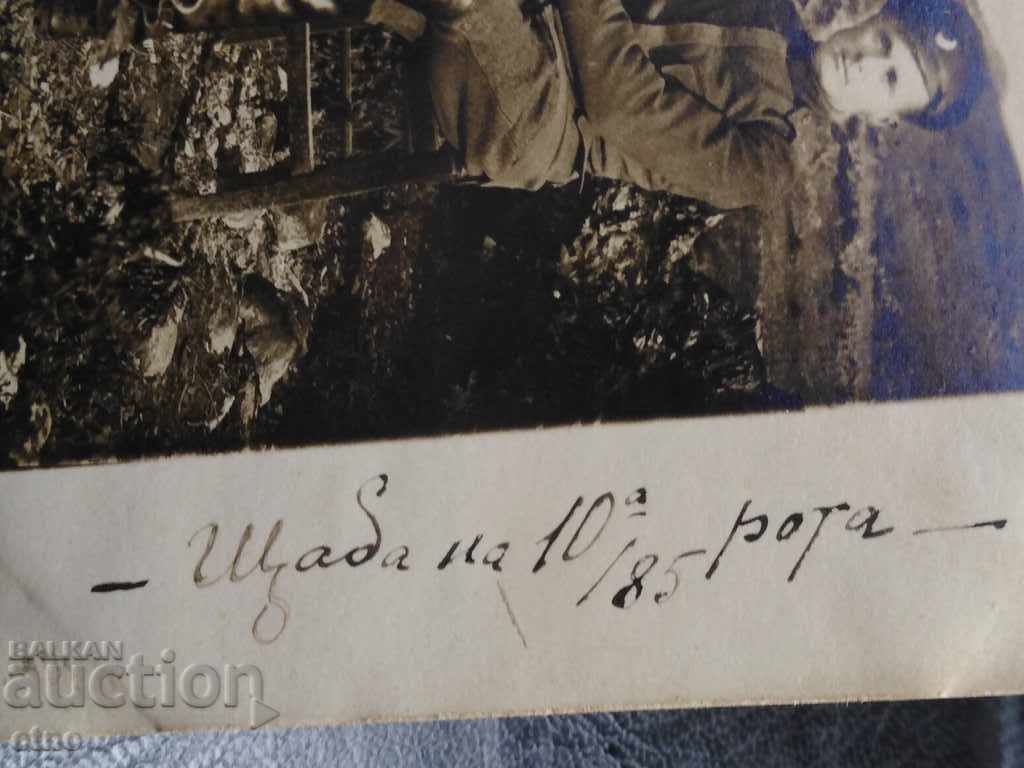 - Щаба на 10ᵃ/85 рота -
BALKAN
auction
otno